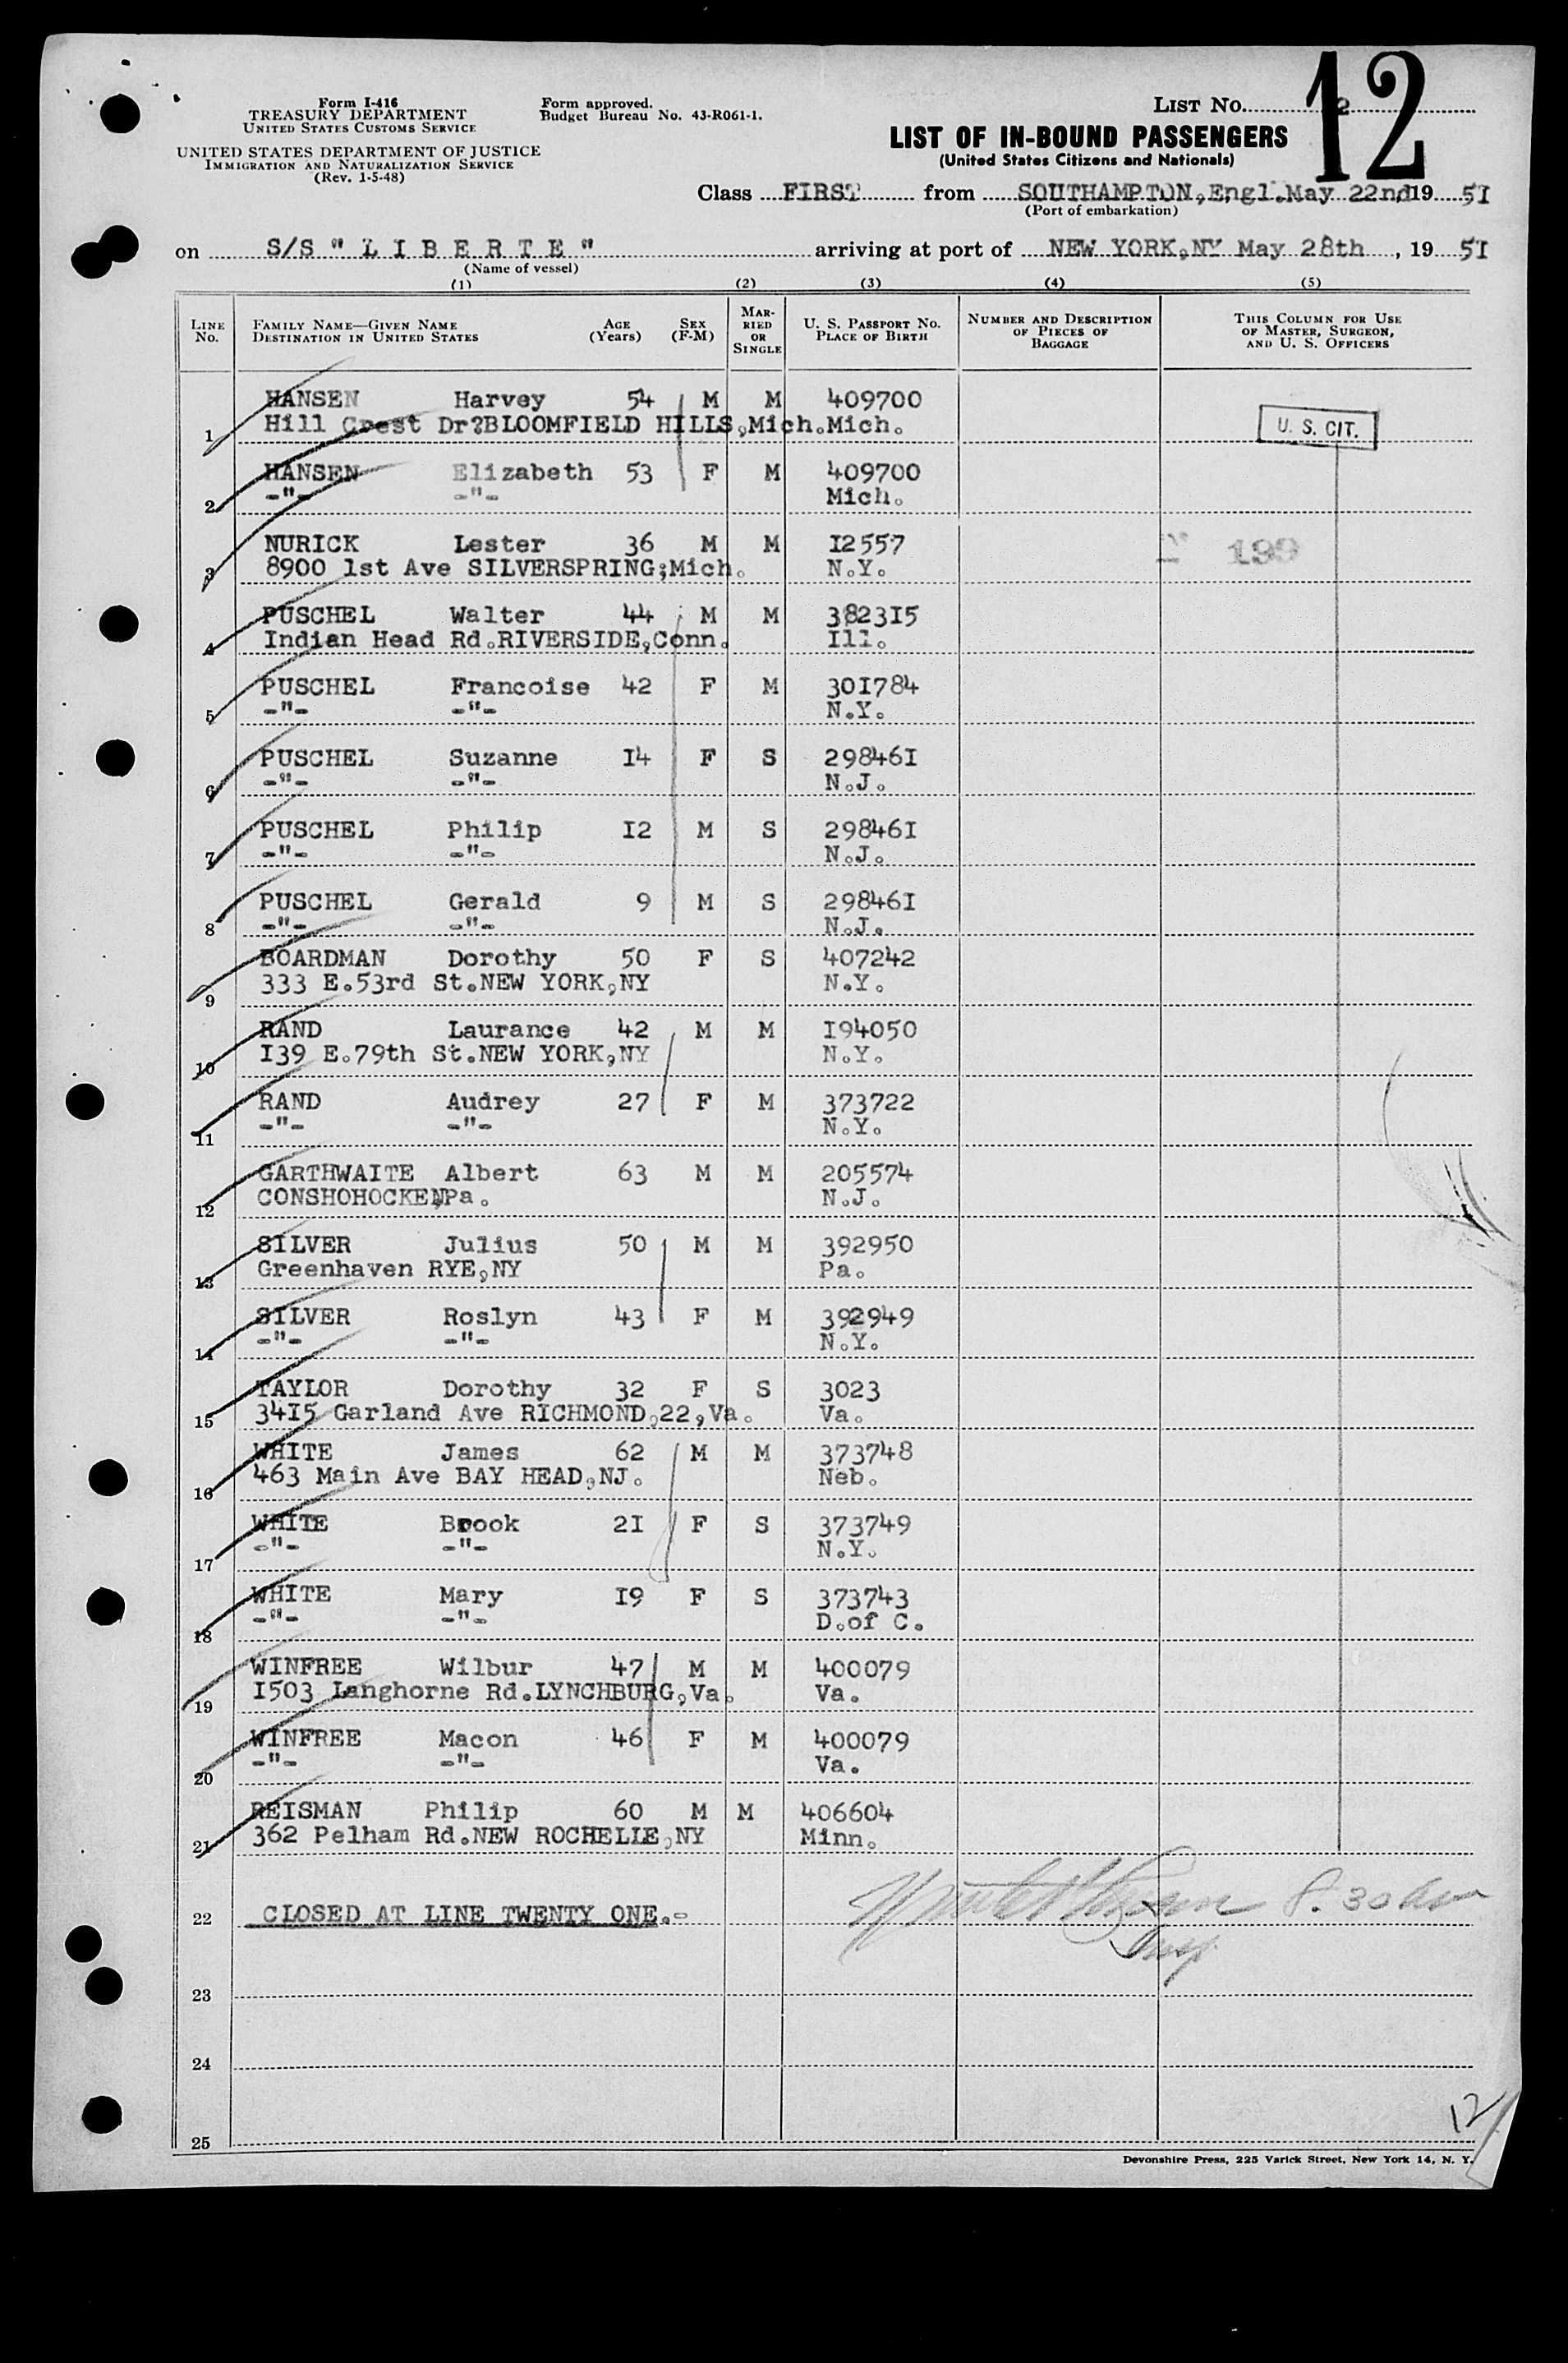 12
Form I-416
TREASURY DEPARTMENT
UNITED STATES CUSTOMS SERVICE
UNITED STATES DEPARTMENT OF JUSTICE
IMMIGRATION AND NATURALIZATION SERVICE
(Rev. 1-5-48)
Form approved.
Budget Bureau No. 43-R061-1.
LIST No. 2
LIST OF IN-BOUND PASSENGERS
(United States Citizens and Nationals)
Class FIRST from SOUTHAMPTON,Engl.May 22nd 19 5I
(Port of embarkation)
on S/S " L I B E R T E " arriving at port of NEW YORK,NY May 28th , 19 5I
(Name of vessel)
(1) (2) (3) (4) (5)
LINE No. FAMILY NAME—GIVEN NAME DESTINATION IN UNITED STATES AGE (Years) SEX (F-M) MARRIED OR SINGLE U. S. PASSPORT No. PLACE OF BIRTH NUMBER AND DESCRIPTION OF PIECES OF BAGGAGE THIS COLUMN FOR USE OF MASTER, SURGEON, AND U. S. OFFICERS
HANSEN Harvey 54 M M 409700
1 Hill Crest Dr?BLOOMFIELD HILLS,Mich.Mich. U. S. CIT.
HANSEN Elizabeth 53 F M 409700
2 -"- -"- Mich.
NURICK Lester 36 M M I2557 199
3 8900 1st Ave SILVERSPRING;Mich. N.Y.
PUSCHEL Walter 44 M M 3823I5
4 Indian Head Rd.RIVERSIDE,Conn. Ill.
PUSCHEL Francoise 42 F M 30I784
5 -"- -"- N.Y.
PUSCHEL Suzanne I4 F S 29846I
6 -"- -"- N.J.
PUSCHEL Philip I2 M S 29846I
7 -"- -"- N.J.
PUSCHEL Gerald 9 M S 29846I
8 -"- -"- N.J.
BOARDMAN Dorothy 50 F S 407242
9 333 E.53rd St.NEW YORK,NY N.Y.
RAND Laurance 42 M M I94050
10 I39 E.79th St.NEW YORK,NY N.Y.
RAND Audrey 27 F M 373722
11 -"- -"- N.Y.
GARTHWAITE Albert 63 M M 205574
12 CONSHOHOCKEN,Pa. N.J.
SILVER Julius 50 M M 392950
13 Greenhaven RYE,NY Pa.
SILVER Roslyn 43 F M 392949
14 -"- -"- N.Y.
TAYLOR Dorothy 32 F S 3023
15 34I5 Garland Ave RICHMOND,22,Va. Va.
WHITE James 62 M M 373748
16 463 Main Ave BAY HEAD,NJ. Neb.
WHITE Brook 2I F S 373749
17 -"- -"- N.Y.
WHITE Mary I9 F S 373743
18 -"- -"- D.of C.
WINFREE Wilbur 47 M M 400079
19 I503 Langhorne Rd.LYNCHBURG,Va. Va.
WINFREE Macon 46 F M 400079
20 -"- -"- Va.
REISMAN Philip 60 M M 406604
21 362 Pelham Rd.NEW ROCHELLE,NY Minn.
8.30 am
22 CLOSED AT LINE TWENTY ONE.-
Insp.
23
24
25
12
Devonshire Press, 225 Varick Street, New York 14, N. Y.